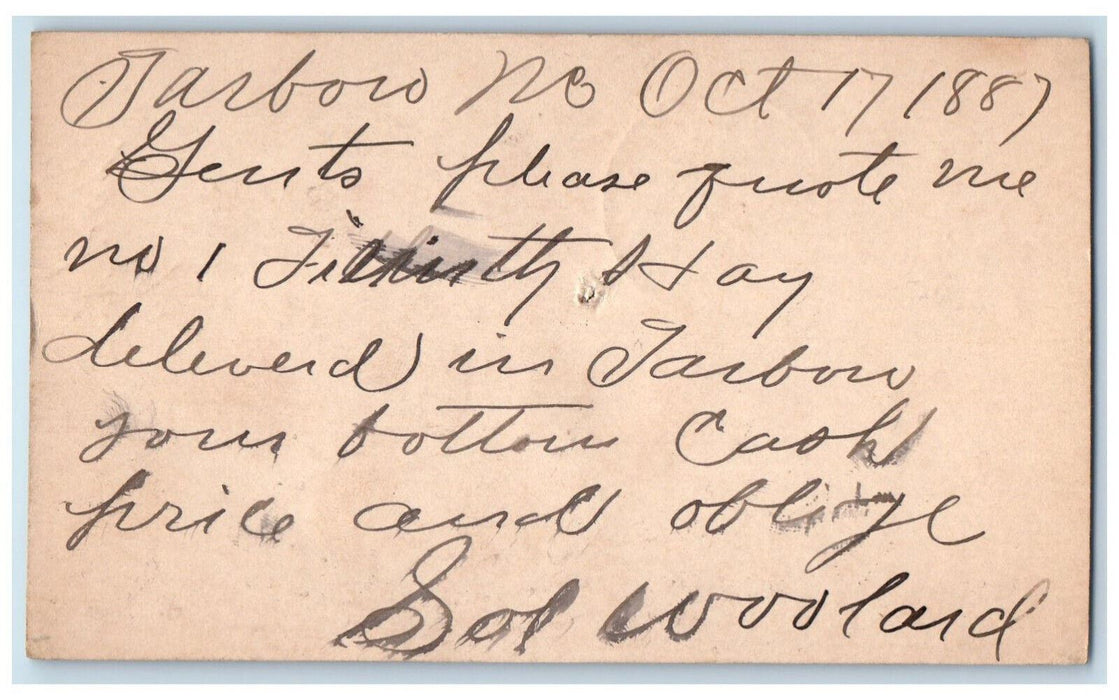 Tarboro NC Oct 17 1887
Gents please quote me
no 1 Hay
deleverd in Tarboro
your bottom Cash
price and oblige
Sol Woolard